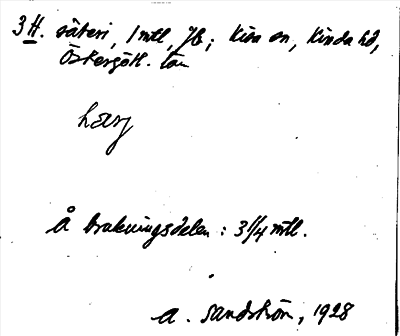 3 H. säteri, 1 mtl, Jb; Kisa sn, Kinda hd,
Östergötl. län
Å brukningsdelen: 3 1/4 mtl.
A. Sandström, 1928